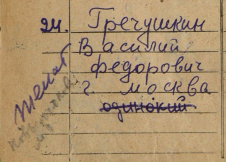 24. Гречушкин
Василий
Федорович
г. Москва
одинокий
женат